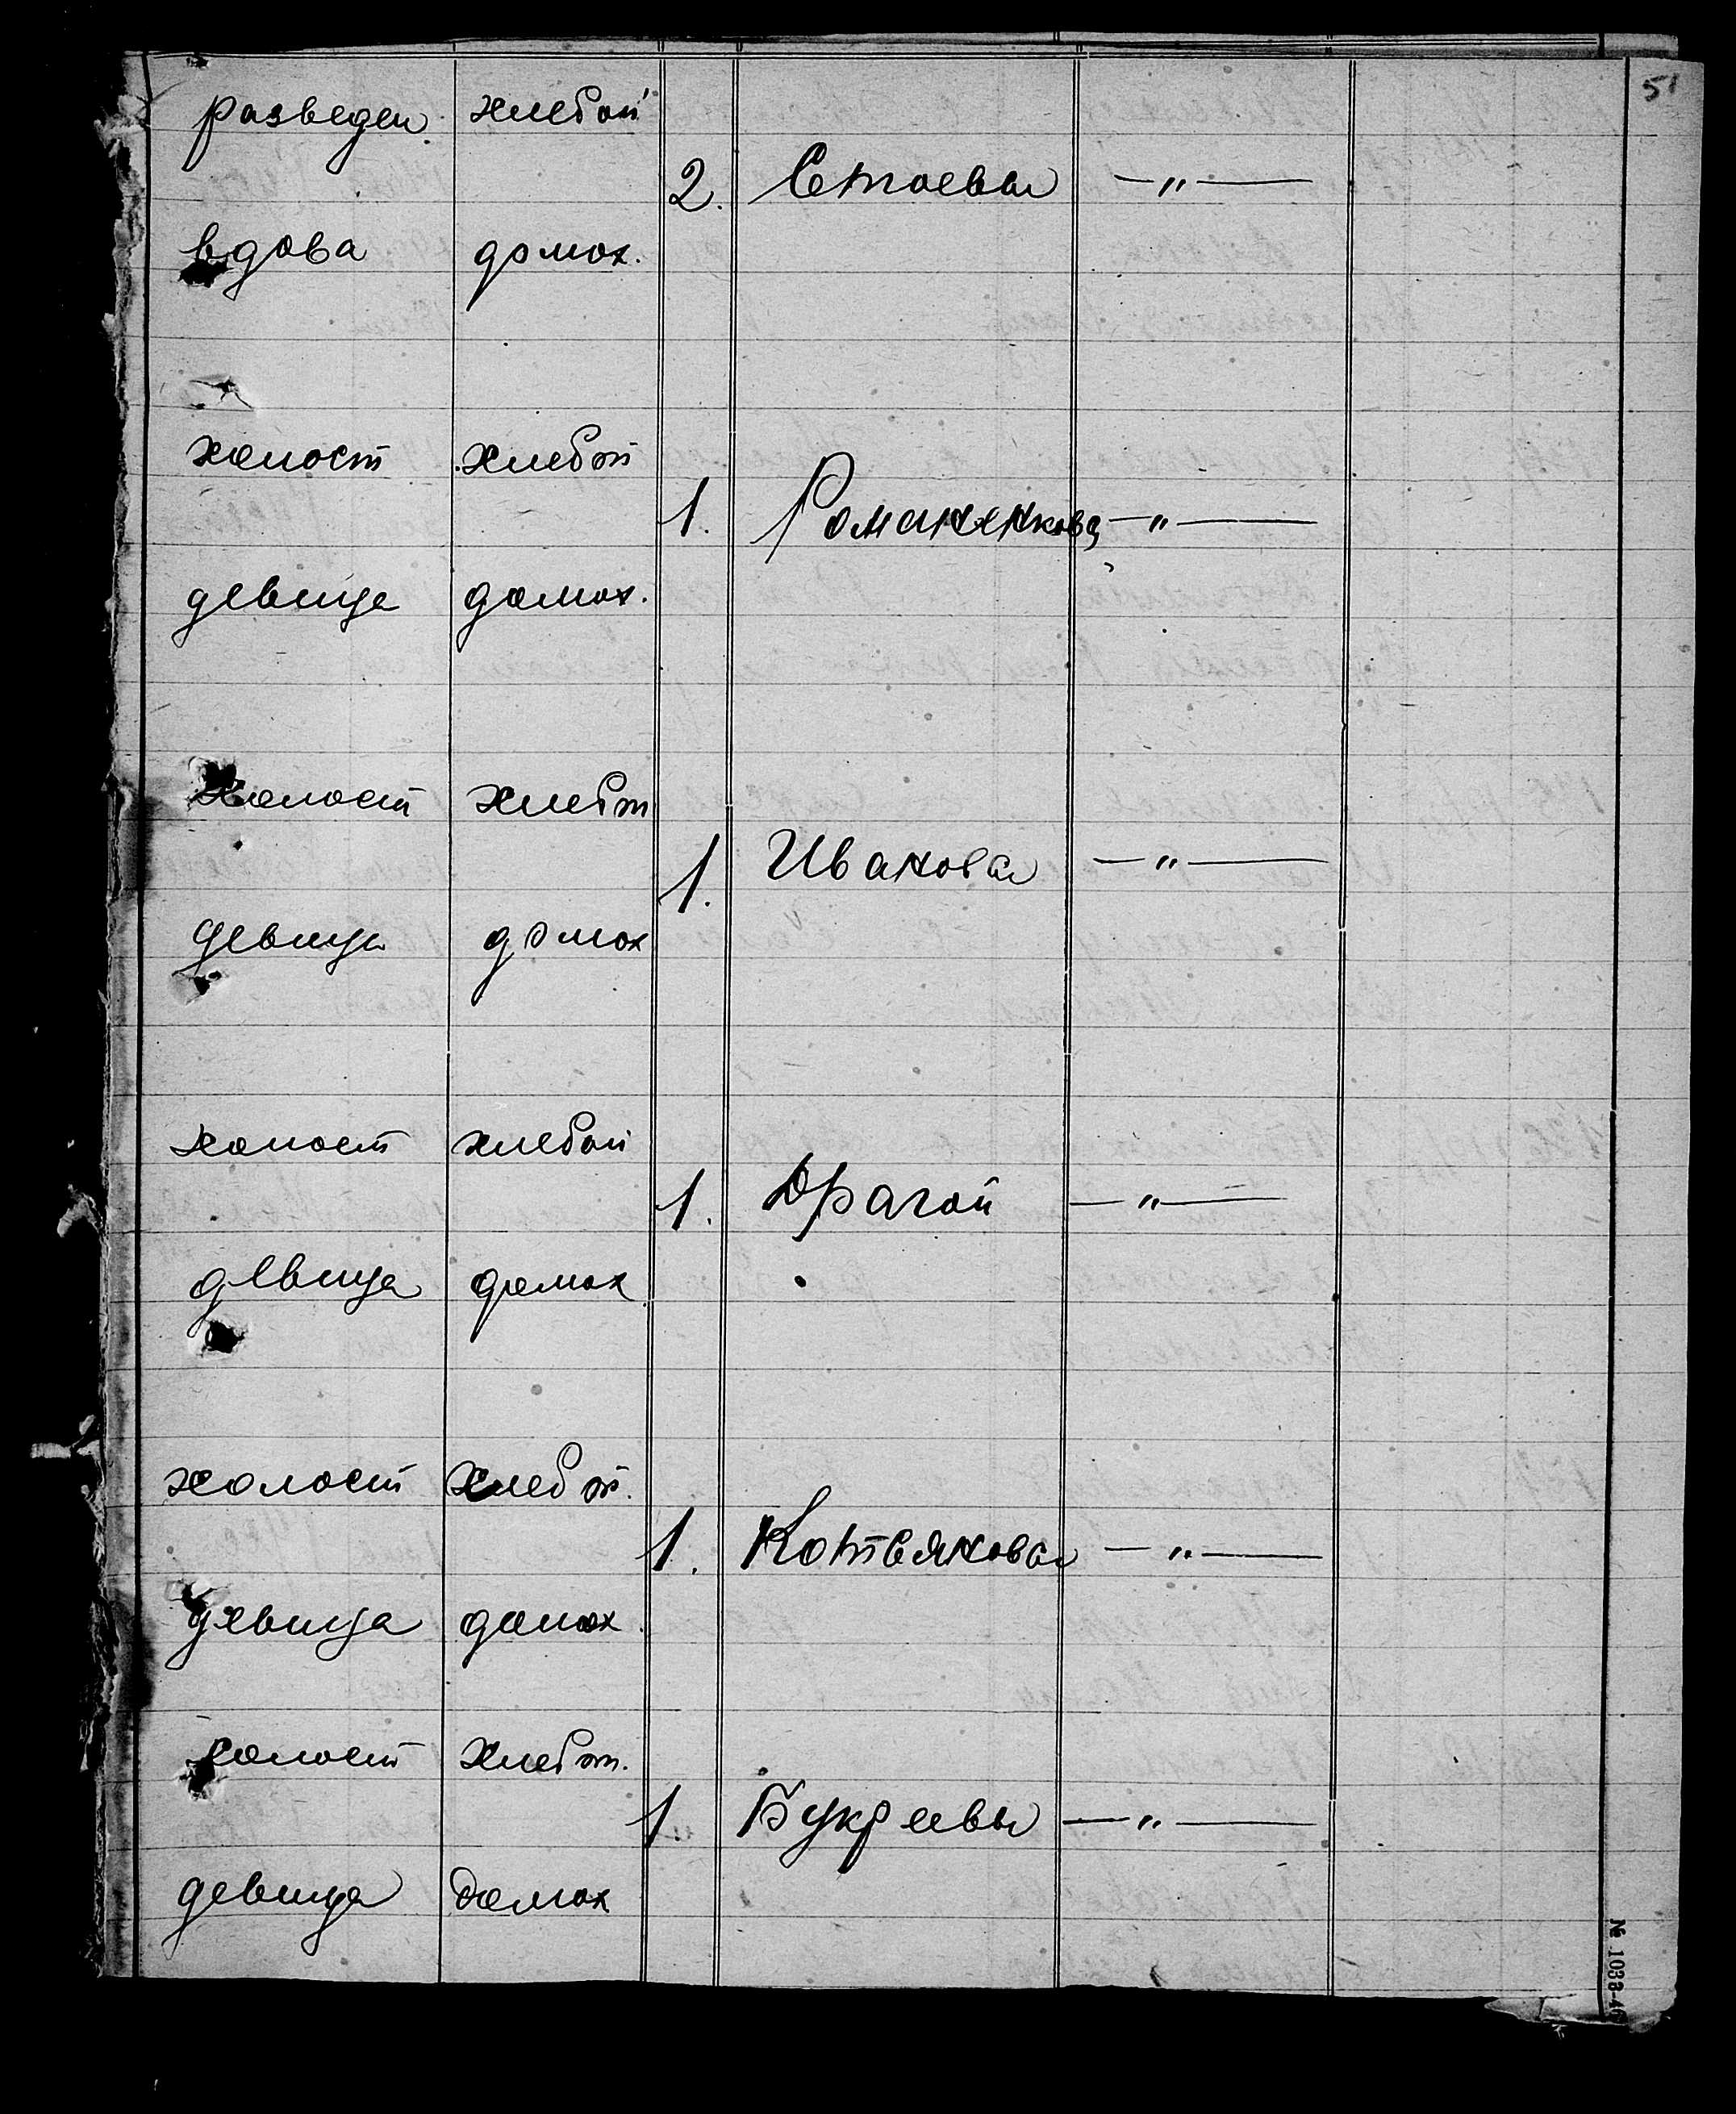 51
разведен. хлебоп
2. Стоевы — " —
вдова домох.
холост хлебоп
1. Романенкова — " —
девица домох.
холост хлебоп
1. Иванова — " —
девица домох
холост хлебоп
1. Драгой — " —
девица домох
холост хлебоп.
1. Котвякова — " —
девица домох
холост хлебоп.
1. Букреевы — " —
девица домох
№ 1033-46